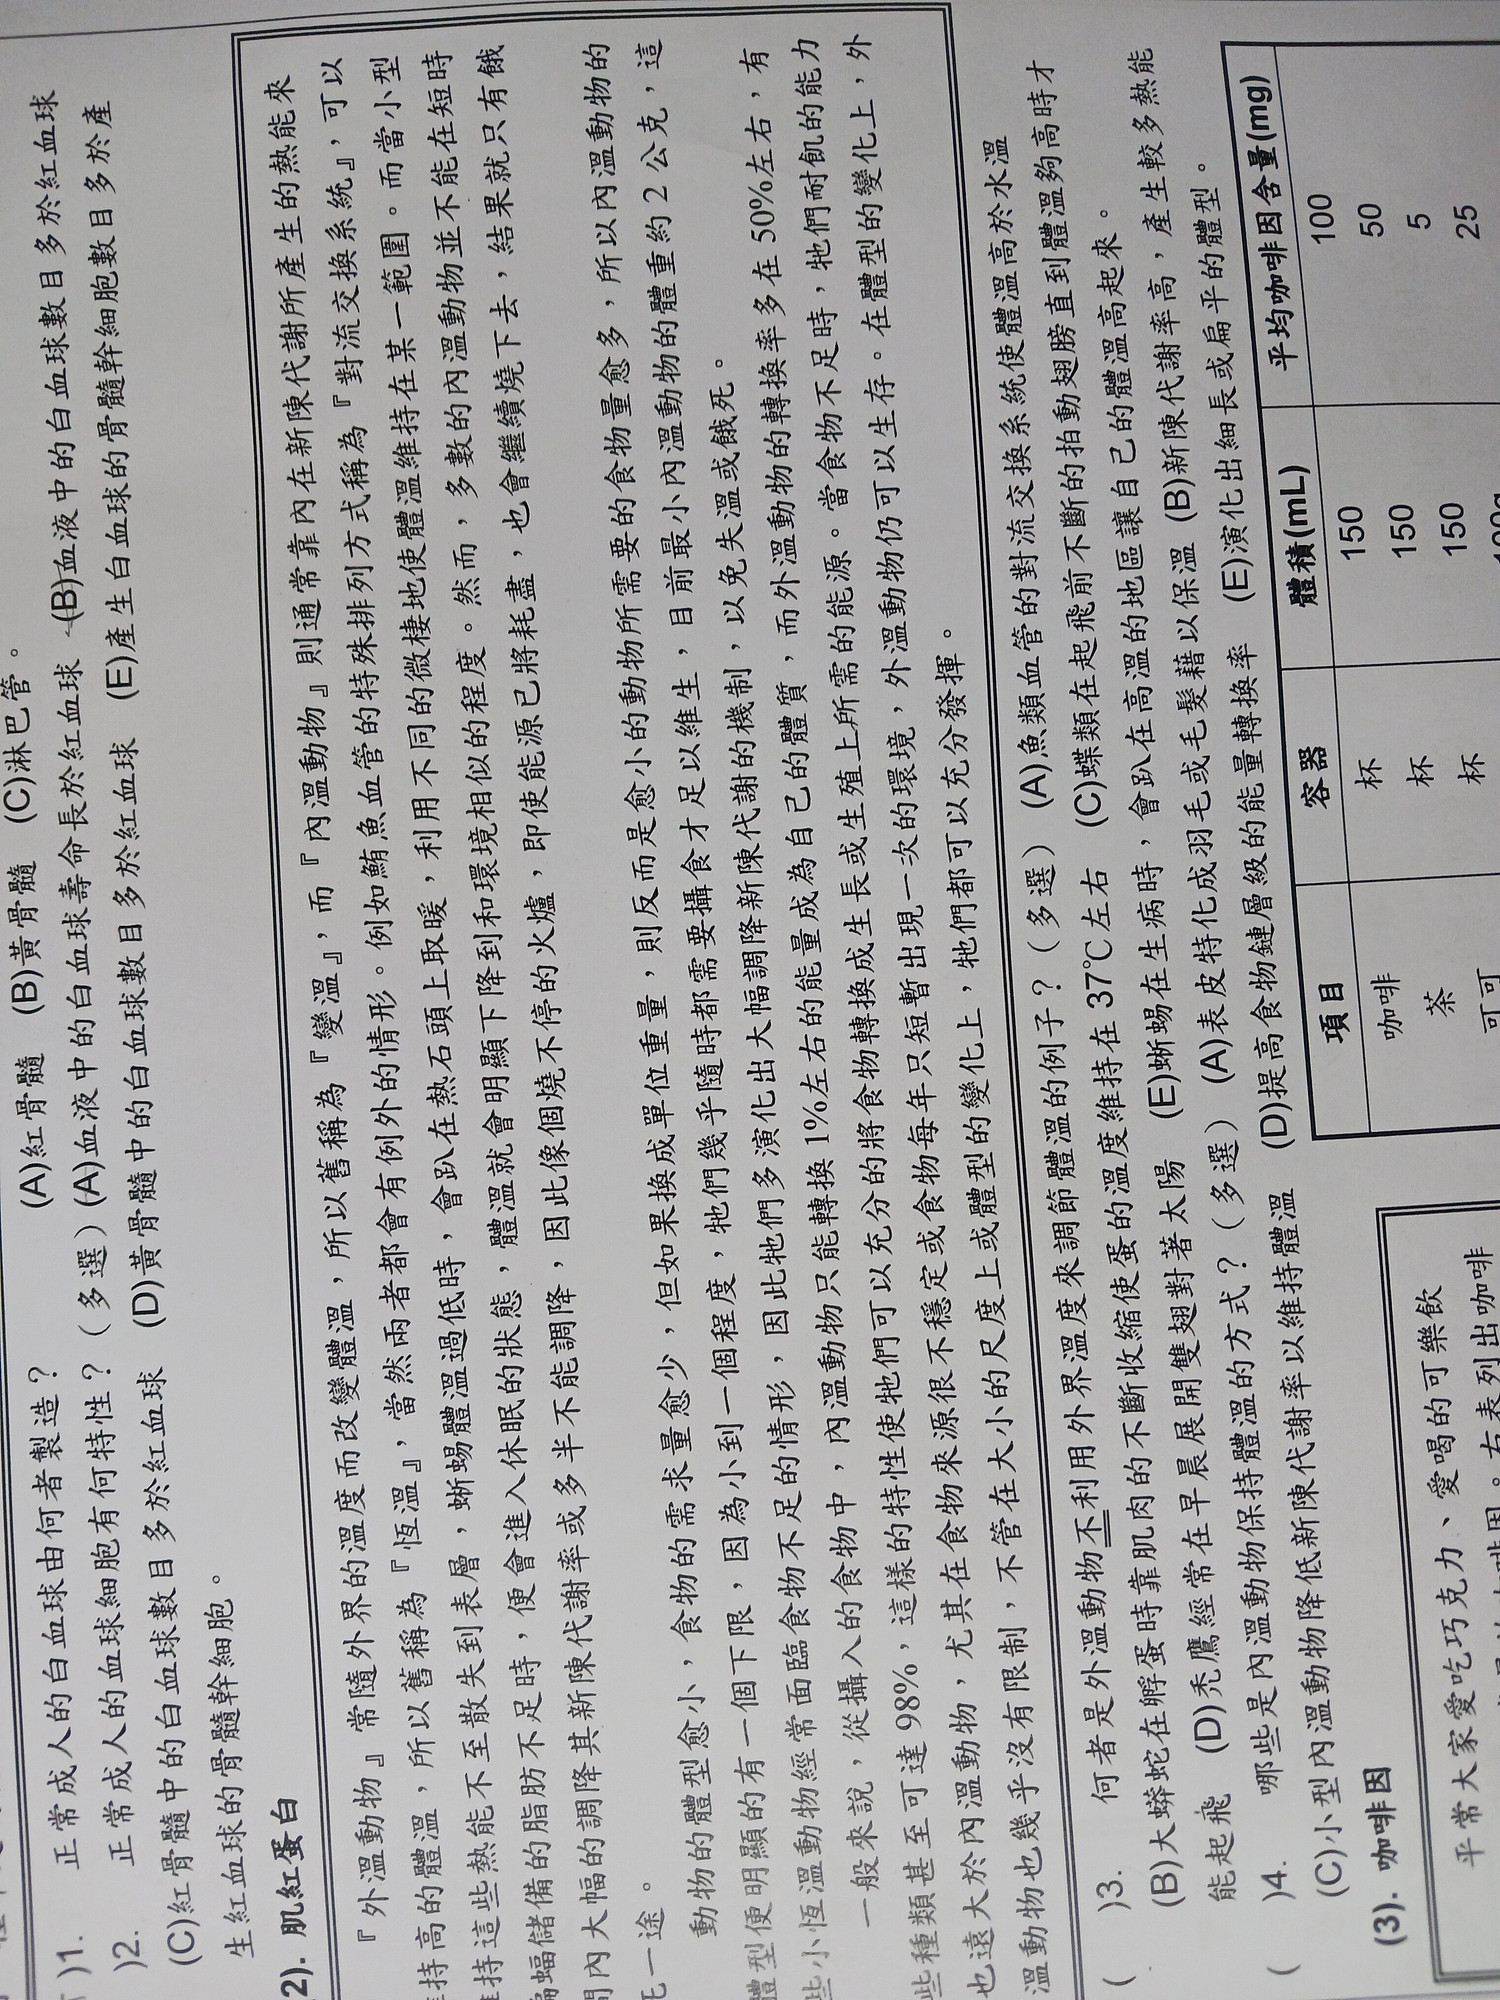 )1. 正常成人的白血球由何者製造? (A)紅骨髓 (B)黃骨髓 (C)淋巴管。
)2. 正常成人的血球細胞有何特性?(多選)(A)血液中的白血球壽命長於紅血球 (B)血液中的白血球數目多於紅血球
(C)紅骨髓中的白血球數目多於紅血球 (D)黃骨髓中的白血球數目多於紅血球 (E)產生白血球的骨髓幹細胞數目多於產
生紅血球的骨髓幹細胞。
2). 肌紅蛋白
『外溫動物』常隨外界的溫度而改變體溫,所以舊稱為『變溫』,而『內溫動物』則通常靠內在新陳代謝所產生的熱能來
持高的體溫,所以舊稱為『恆溫』,當然兩者都會有例外的情形。例如鮪魚血管的特殊排列方式稱為『對流交換系統』,可以
持這些熱能不至散失到表層,蜥蜴體溫過低時,會趴在熱石頭上取暖,利用不同的微棲地使體溫維持在某一範圍。而當小型
蝠儲備的脂肪不足時,便會進入休眠的狀態,體溫就會明顯下降到和環境相似的程度。然而,多數的內溫動物並不能在短時
內大幅的調降其新陳代謝率或多半不能調降,因此像個燒不停的火爐,即使能源已將耗盡,也會繼續燒下去,結果就只有餓
一途。
動物的體型愈小,食物的需求量愈少,但如果換成單位重量,則反而是愈小的動物所需要的食物量愈多,所以內溫動物的
體型便明顯的有一個下限,因為小到一個程度,牠們幾乎隨時都需要攝食才足以維生,目前最小內溫動物的體重約 2 公克,這
些小恆溫動物經常面臨食物不足的情形,因此牠們多演化出大幅調降新陳代謝的機制,以免失溫或餓死。
一般來說,從攝入的食物中,內溫動物只能轉換 1%左右的能量成為自己的體質,而外溫動物的轉換率多在 50%左右,有
些種類甚至可達 98%,這樣的特性使牠們可以充分的將食物轉換成生長或生殖上所需的能源。當食物不足時,牠們耐飢的能力
也遠大於內溫動物,尤其在食物來源很不穩定或食物每年只短暫出現一次的環境,外溫動物仍可以生存。在體型的變化上,外
溫動物也幾乎沒有限制,不管在大小的尺度上或體型的變化上,牠們都可以充分發揮。
( )3. 何者是外溫動物不利用外界溫度來調節體溫的例子?(多選) (A)魚類血管的對流交換系統使體溫高於水溫
(B)大蟒蛇在孵蛋時靠肌肉的不斷收縮使蛋的溫度維持在 37℃左右 (C)蝶類在起飛前不斷的拍動翅膀直到體溫夠高時才
能起飛 (D)禿鷹經常在早晨展開雙翅對著太陽 (E)蜥蜴在生病時,會趴在高溫的地區讓自己的體溫高起來。
( )4. 哪些是內溫動物保持體溫的方式?(多選) (A)表皮特化成羽毛或毛髮藉以保溫 (B)新陳代謝率高,產生較多熱能
(C)小型內溫動物降低新陳代謝率以維持體溫 (D)提高食物鏈層級的能量轉換率 (E)演化出細長或扁平的體型。
(3). 咖啡因
平常大家愛吃巧克力、愛喝的可樂飲
右表列出咖啡
項目 容器 體積(mL) 平均咖啡因含量(mg)
咖啡 杯 150 100
茶 杯 150 50
可可 杯 150 5
25